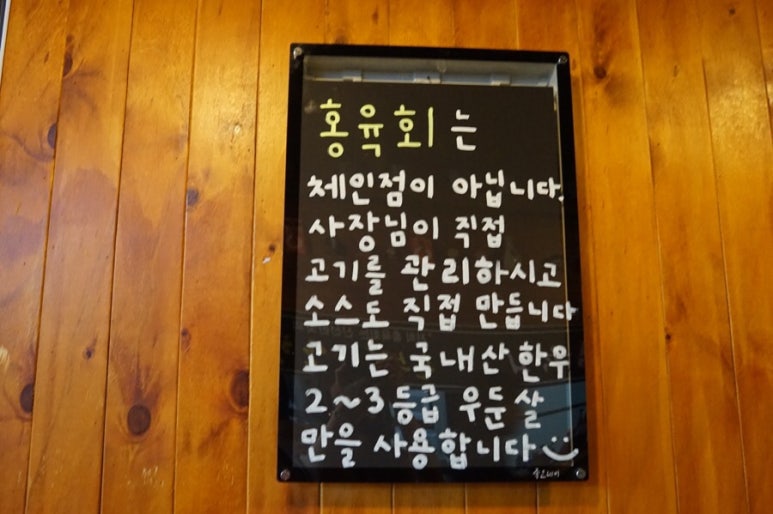 홍육회는
체인점이 아닙니다.
사장님이 직접
고기를 관리하시고
소스도 직접 만듭니다
고기는 국내산한우
2~3등급 우둔살
만을 사용합니다